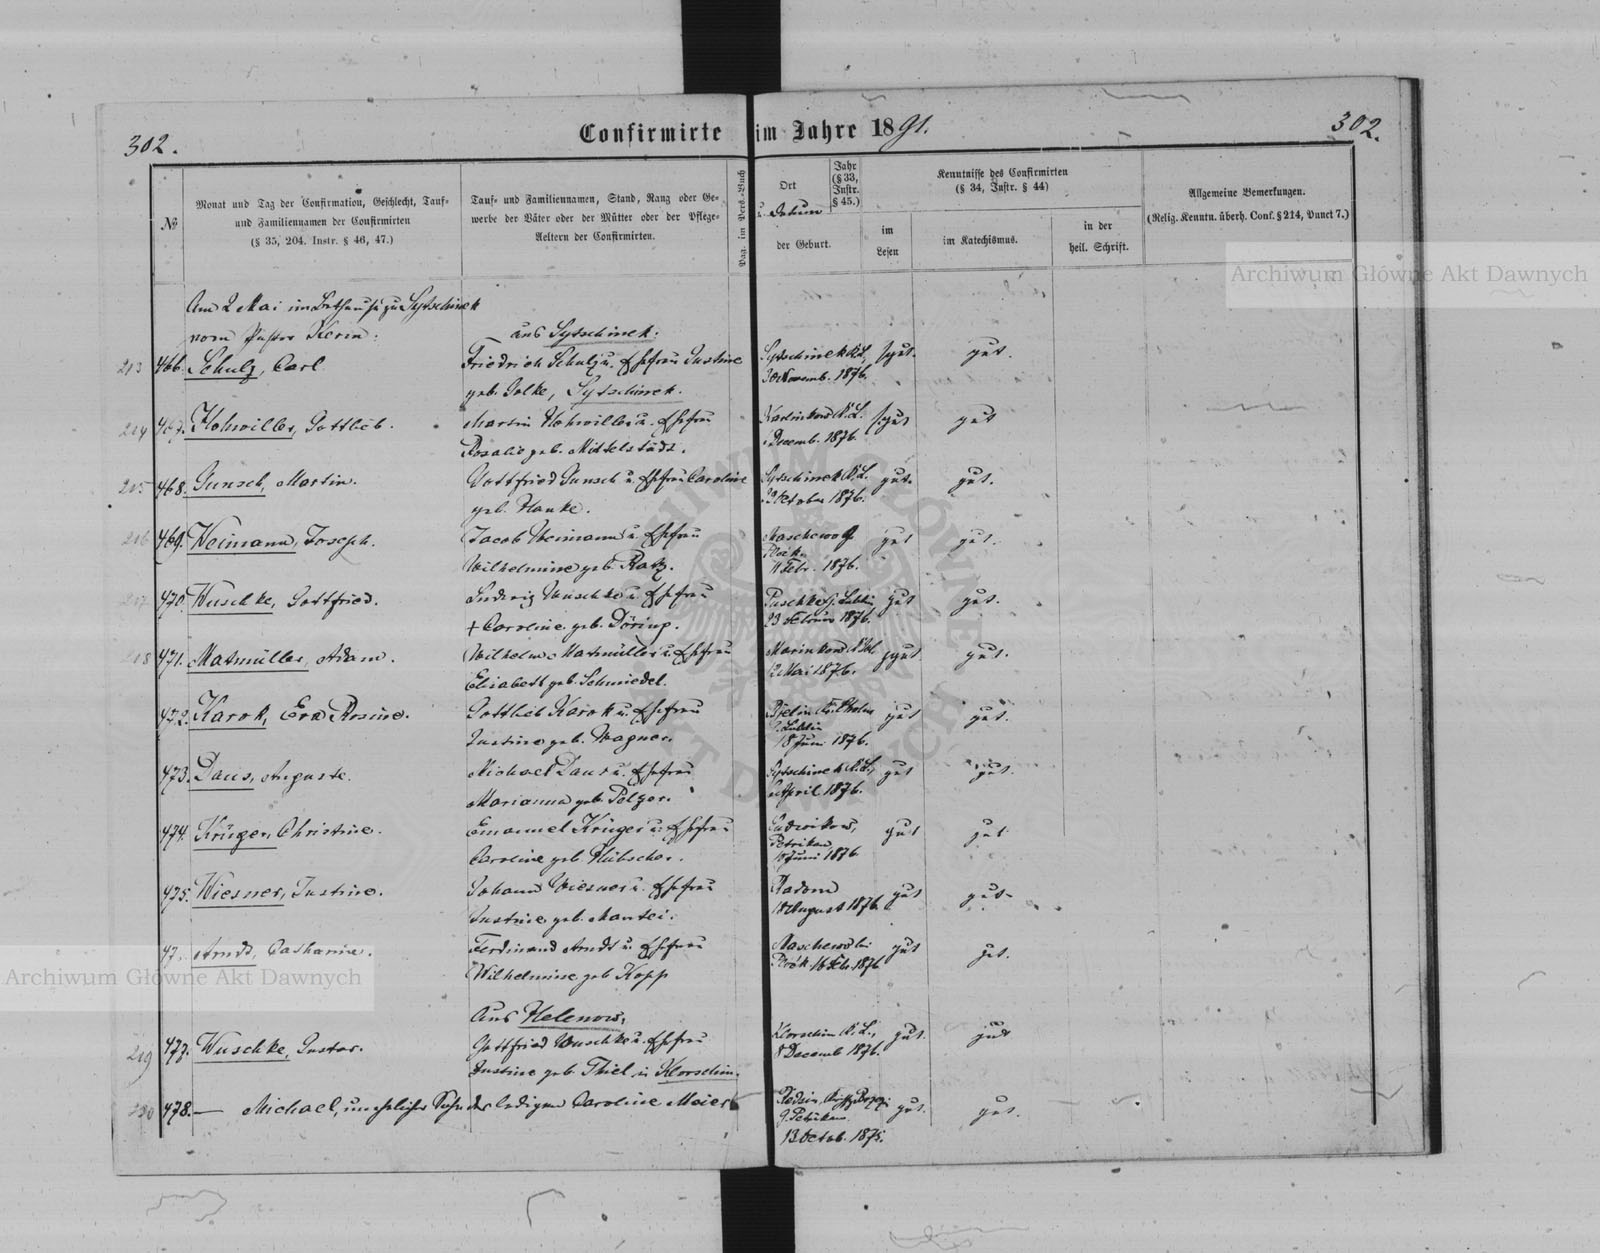 302.
Confirmirte im Jahre 1891.
302.
№
Monat und Tag der Confirmation, Geschlecht, Tauf-
und Familiennamen der Confirmirten
(§ 35, 204. Instr. § 46, 47.)
Tauf- und Familiennamen, Stand, Rang oder Ge-
werbe der Väter oder der Mütter oder der Pflege-
Aeltern der Confirmirten.
Pag. im Pers.-Buch
Ort
u. Datum
der Geburt.
Jahr
(§ 33,
Instr.
§ 45.)
Kenntnisse des Confirmirten
(§ 34, Instr. § 44)
im
Lesen
im Katechismus.
in der
heil. Schrift.
Allgemeine Bemerkungen.
(Relig. Kenntn. überh. Conf. § 214, Punct 7.)
Archiwum Główne Akt Dawnych
Am 2 Mai im Bethause zu Sytschinek
vom Pastor Kerm:
aus Sytschinek:
213 466. Schulz, Carl Friedrich Schulz u. Ehefrau Justine Sytschinek K.L. gut. gut.
geb. Golke, Sytschinek. Novemb. 1876.
214 467. Hohwiller, Gottlieb. Martin Hohwiller u. Ehefrau K.L. gut gut
Rosalie geb. Mittelstädt. Decemb. 1876.
215 468. Junsch, Martin. Gottfried Junsch u. Ehefrau Caroline Sytschinek K.L. gut. gut.
geb. Hanke. October 1876.
216 469. Weimann, Joseph. Jacob Weimann u. Ehefrau Maschewo G. gut gut.
Wilhelmine geb. Ratz. Plock
11 Febr. 1876.
217 470. Wuschke, Gottfried. Ludwig Wuschke u. Ehefrau G. Lublin gut gut.
+ Caroline geb. Döring. 23 Februar 1876.
218 471. Matmüller, Adam. Wilhelm Matmüller u. Ehefrau gut gut.
Elisabeth geb. Schmiedel. 12 Mai 1876.
472. Karok, Eva Rosine. Gottlieb Karok u. Ehefrau Cholm gut gut.
Justine geb. Wagner. G. Lublin
18 Juni 1876.
473. Daus, Auguste. Michael Daus u. Ehefrau Sytschinek K.L., gut gut.
Marianna geb. Pelzer. April 1876.
474. Krüger, Christine. Emanuel Krüger u. Ehefrau Ludwikow, gut gut
Caroline geb. Hübscher. Petrikau
Juni 1876.
475. Wiesner, Justine. Johann Wiesner u. Ehefrau Radom gut gut
Justine geb. Mantei. 18 August 1876.
47 Arndt, Catharine. Ferdinand Arndt u. Ehefrau Maschewo bei gut gut.
Wilhelmine geb. Kopp Plock 16 Feb. 1876
Archiwum Główne Akt Dawnych
Aus Helenow,
219 477. Wuschke, Gustav. Gottfried Wuschke u. Ehefrau Klorschin K.L., gut. gut
Justine geb. Thiel in Klorschin. 8 Decemb 1876.
220 478. — Michael, unehelicher Sohn der ledigen Caroline Meier gut. gut.
G. Petrikau
13 Octob. 1875.